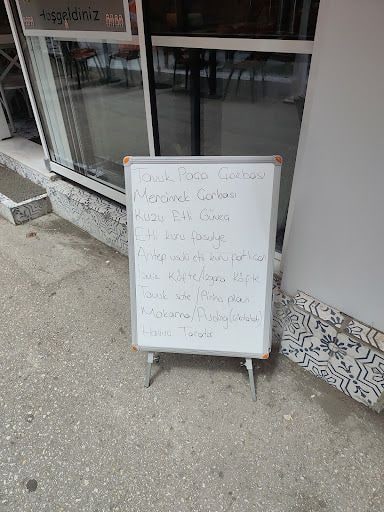 Hoşgeldiniz
Tavuk Paça Çorbası
Mercimek Çorbası
Kuzu Etli Güveç
Etli kuru fasulye
Antep usulü etli kuru patlıcan
Köfte/Izgara Köfte
Tavuk sote/Pirinç pilavı
Makarna/Puding(çikolatalı)
Havuç Tarator